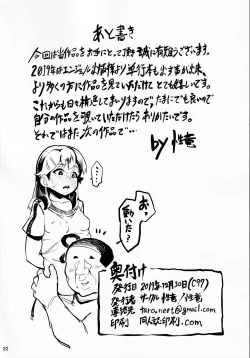 あと書き
今回は当作品をお手にとって頂き誠に有難うございます。
2019年はエンジェル出版様より単行本も出す事が出来、
より多くの方に作品を見ていただけて とても嬉しいです。
これからも日々精進してまいりますので、たまにでも良いので
自分の作品を覗いていただけたらありがたいです。
それではまた次の作品で…
by 性竜
おっ
動いた?
奥付け
発行日 2019年12月30日(C97)
発行者 サークル性竜/性竜
連絡先 taro.neet@gmail.com
印刷 同人誌印刷.com
22